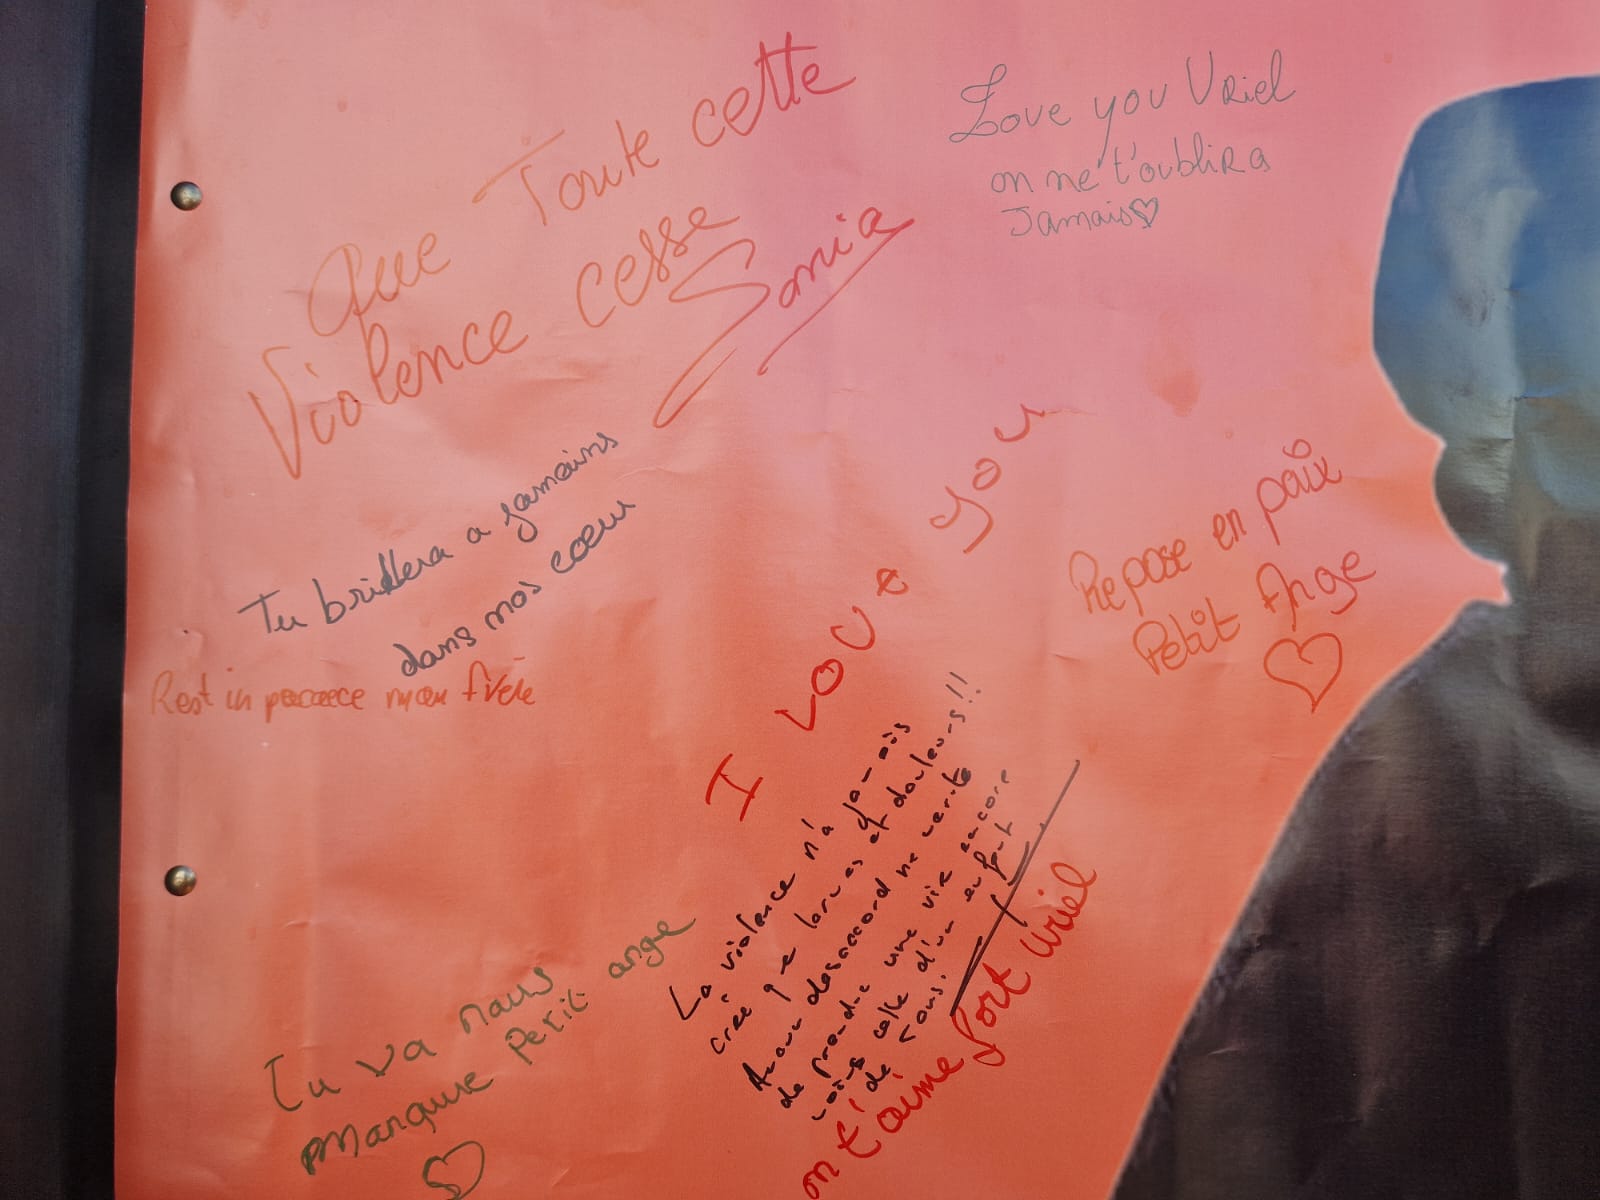 Que Toute cette
Violence cesse
Sonia
Love you Uriel
on ne t'oublira
Jamais♡
Tu brillera a jamains
dans nos coeur
Rest in peace mon frère
I Love you
Repose en paix
Petit Ange
♡
La violence n'a jamais
créé que larmes et douleurs!!
Aucun desaccord ne merite
de prendre une vie encore
moins celle d'un enfant
de tous.
on t'aime fort Uriel
Tu va nous
manquere petit ange
♡